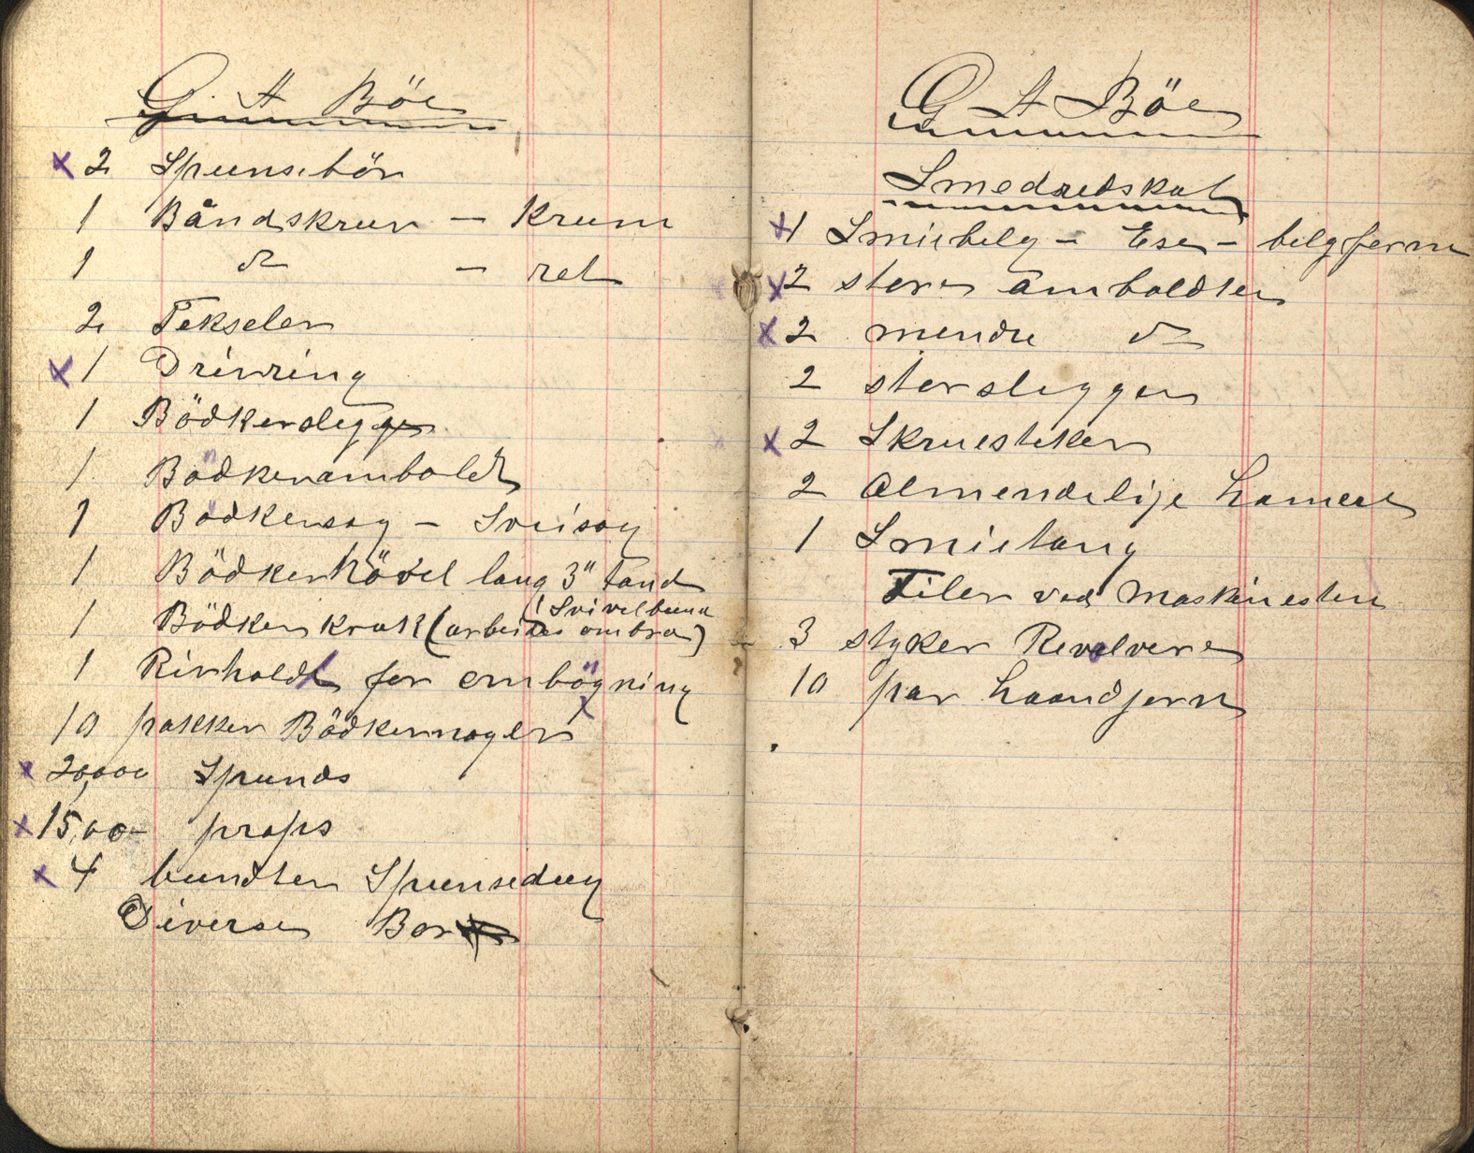 G. A Böe
x 2 Spunsebör
1 Båndskruv – Krum
1 do – ret
2 Tekseler
x 1 Drivring
1 Bödkerslegge
1 Bödkerambolt
1 Bödkersag – Sveisag
1 Bödkerhövel lang 3" Tand
1 Bödkerkrak (arbeides ombra)
1 Rivholdt for ombögning
10 pakker Bödkernagler
x 20,000 Spunds
x 15,00– props
x 4 bundter Spunsedug
Diverse Bor
G A Böe
Smedredskab
x 1 Smiebelg – Ese – belgform
x 2 store amboldter
x 2 mendre do
2 storslegger
x 2 Skruesteker
2 Almendelije hamere
1 Smietang
Filer ved Maskinesten
3 styker Revolvere
10 par haandjern